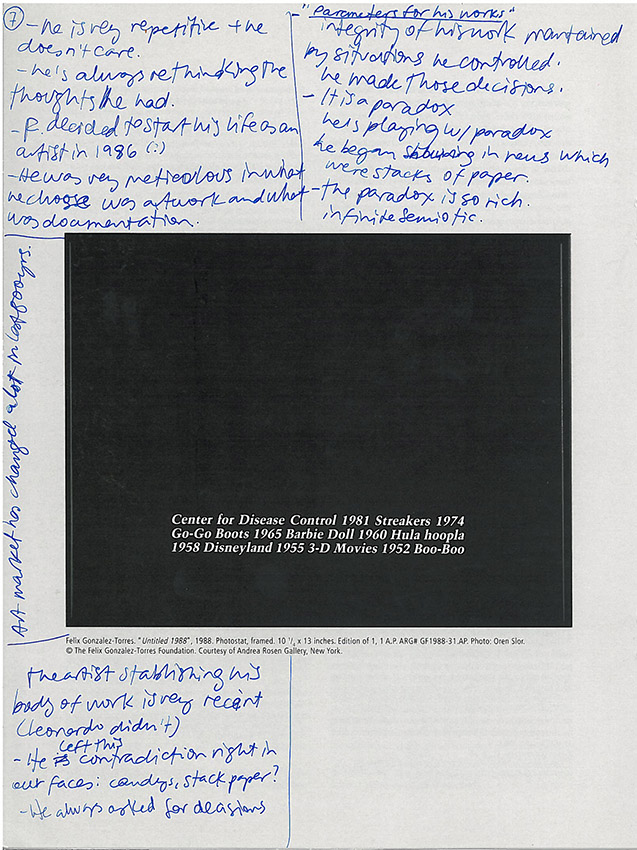 7
- he is very repetitive + he
doesn't care.
- he's always rethinking the
thoughts he had.
- F. decided to start his life as an
artist in 1986 (?)
- He was very meticolous in what
he choose was artwork and what
was documentation.
- "Parameters for his works"
integrity of his work maintained
by situations he controlled.
he made those decisions.
- It is a paradox
he is playing w/ paradox
he began in news which
were stacks of paper.
- the paradox is so rich.
infinite semiotic.
Art market has changed a lot in last 600 yrs.
Center for Disease Control 1981 Streakers 1974
Go-Go Boots 1965 Barbie Doll 1960 Hula hoopla
1958 Disneyland 1955 3-D Movies 1952 Boo-Boo
Felix Gonzalez-Torres. "Untitled 1988", 1988. Photostat, framed. 10 1/4 x 13 inches. Edition of 1, 1 A.P. ARG# GF1988-31.AP. Photo: Oren Slor.
© The Felix Gonzalez-Torres Foundation. Courtesy of Andrea Rosen Gallery, New York.
the artist stablishing his
body of work is very recent
(Leonardo didn't)
- He left this contradiction right in
our faces: candys, stack paper?
- He always asked for decisions